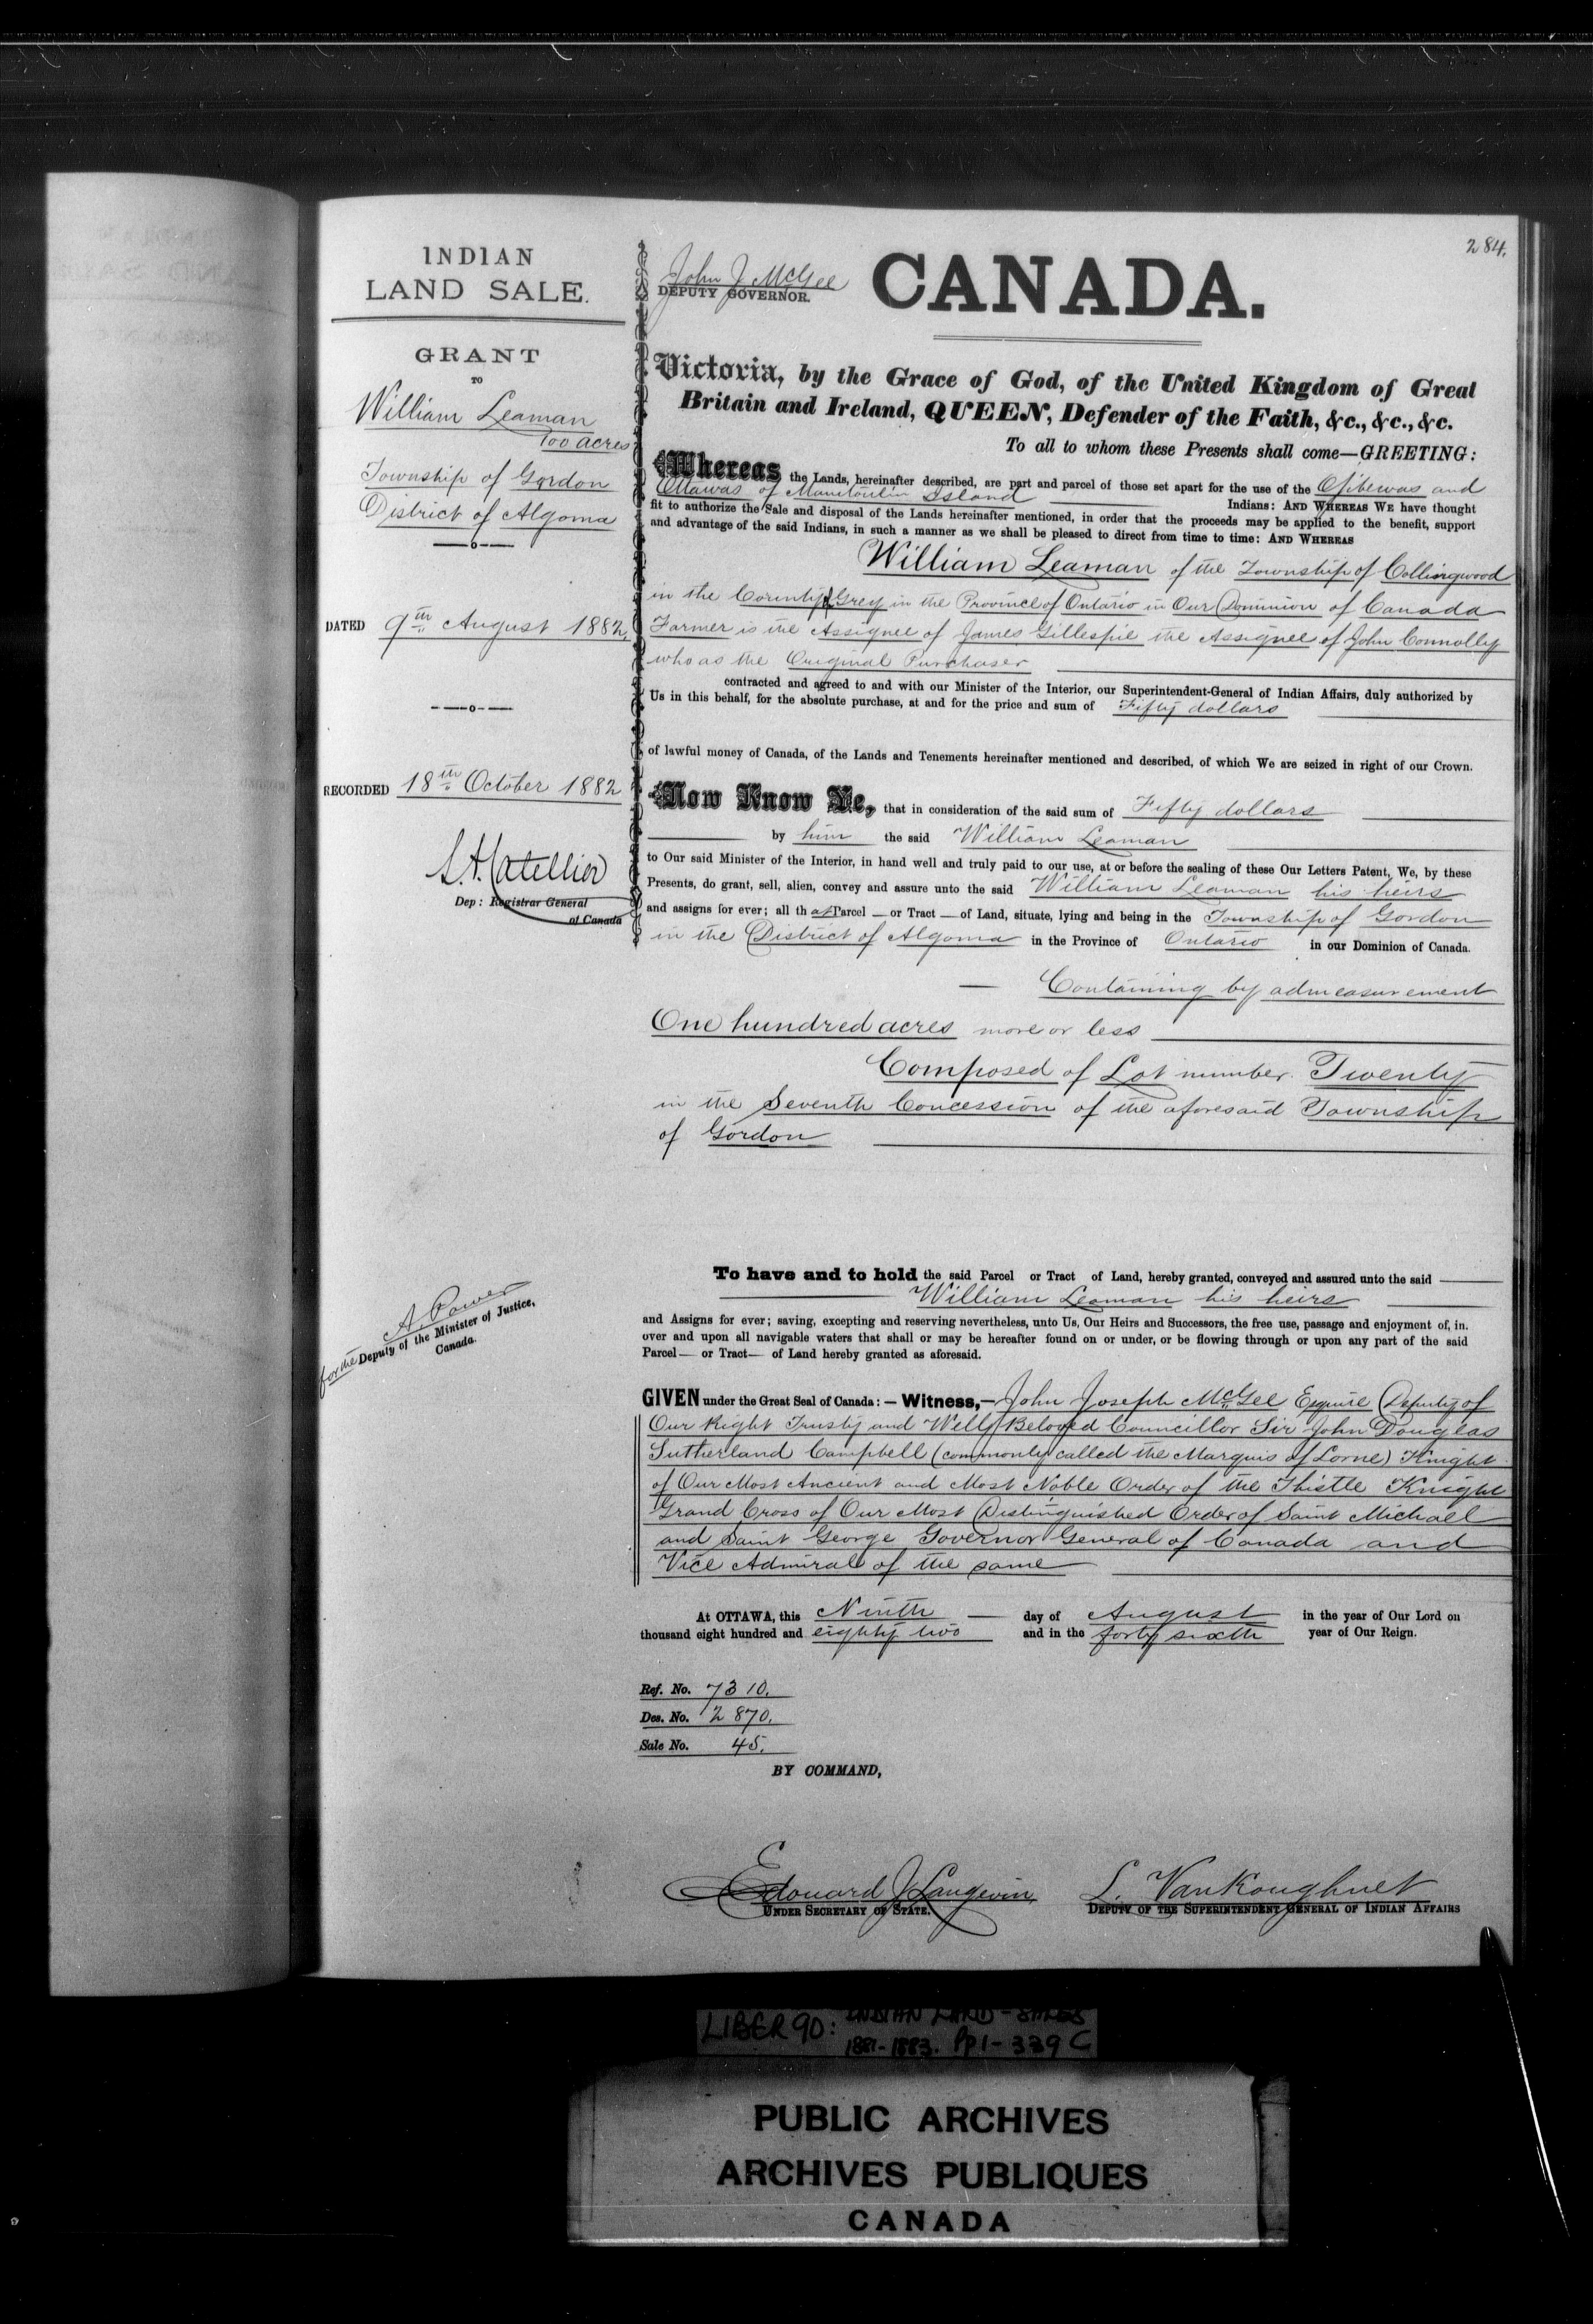 284.
INDIAN
LAND SALE.
GRANT
TO
William Leaman
100 acres
Township of Gordon
District of Algoma
DATED 9th August 1882
RECORDED 18th October 1882
Dep: Registrar General
of Canada
A. Power
for the Deputy of the Minister of Justice,
Canada.
John J McGee
DEPUTY GOVERNOR.
CANADA.
Victoria, by the Grace of God, of the United Kingdom of Great
Britain and Ireland, QUEEN, Defender of the Faith, &c., &c., &c.
To all to whom these Presents shall come—GREETING:
Whereas the Lands, hereinafter described, are part and parcel of those set apart for the use of the Ojibewas and
Ottawas of Manitoulin Island Indians: AND WHEREAS WE have thought
fit to authorize the Sale and disposal of the Lands hereinafter mentioned, in order that the proceeds may be applied to the benefit, support
and advantage of the said Indians, in such a manner as we shall be pleased to direct from time to time: AND WHEREAS
William Leaman of the Township of Collingwood
in the County of Grey in the Province of Ontario in Our Dominion of Canada
Farmer is the Assignee of James Gillespie the Assignee of John Connolly
who as the Original Purchaser
contracted and agreed to and with our Minister of the Interior, our Superintendent-General of Indian Affairs, duly authorized by
Us in this behalf, for the absolute purchase, at and for the price and sum of Fifty dollars
of lawful money of Canada, of the Lands and Tenements hereinafter mentioned and described, of which We are seized in right of our Crown.
Now Know Ye, that in consideration of the said sum of Fifty dollars
by him the said William Leaman
to Our said Minister of the Interior, in hand well and truly paid to our use, at or before the sealing of these Our Letters Patent, We, by these
Presents, do grant, sell, alien, convey and assure unto the said William Leaman his heirs
and assigns for ever; all that Parcel — or Tract — of Land, situate, lying and being in the Township of Gordon
in the District of Algoma in the Province of Ontario in our Dominion of Canada.
— Containing by admeasurement
One hundred acres more or less
Composed of Lot number Twenty
in the Seventh Concession of the aforesaid Township
of Gordon
To have and to hold the said Parcel or Tract of Land, hereby granted, conveyed and assured unto the said
William Leaman his heirs
and Assigns for ever; saving, excepting and reserving nevertheless, unto Us, Our Heirs and Successors, the free use, passage and enjoyment of, in.
over and upon all navigable waters that shall or may be hereafter found on or under, or be flowing through or upon any part of the said
Parcel — or Tract — of Land hereby granted as aforesaid.
GIVEN under the Great Seal of Canada: — Witness,— John Joseph McGee Esquire Deputy of
Our Right Trusty and Well Beloved Councillor Sir John Douglas
Sutherland Campbell (commonly called the Marquis of Lorne) Knight
of Our Most Ancient and Most Noble Order of the Thistle Knight
Grand Cross of Our Most Distinguished Order of Saint Michael
and Saint George Governor General of Canada and
Vice Admiral of the same
At OTTAWA, this Ninth — day of August in the year of Our Lord on
thousand eight hundred and eighty two and in the forty sixth year of Our Reign.
Ref. No. 7310.
Des. No. 2870.
Sale No. 45.
BY COMMAND,
Edouard J Langevin
UNDER SECRETARY OF STATE.
L. VanKoughnet
DEPUTY OF THE SUPERINTENDENT GENERAL OF INDIAN AFFAIRS
LIBER 90: INDIAN LAND - SALES
1881-1883. Pp 1-339 C
PUBLIC ARCHIVES
ARCHIVES PUBLIQUES
CANADA